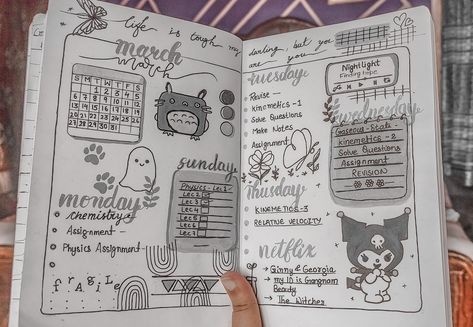 life is tough my
march
march
S M T W T F S
1 2 3 4 5
6 7 8 9 10 11 12
13 14 15 16 17 18 19
20 21 22 23 24 25 26
27 28 29 30 31
sunday
Physics - Lec 1
Lec 2
Lec 3
Lec 4
Lec 5
Lec 6
Lec 7
monday
chemistry
Assignment
Physics Assignment
fragile
darling, but
are you
tuesday
Revise
Kinemetics - 1
Solve Questions
Make Notes
Assignment
Nightlight
Finding hope
wednesday
Gaseous State
Kinemetics - 2
Solve Questions
Assignment
REVISION
thursday
KINEMETICS - 3
RELATIVE VELOCITY
netflix
→ Ginny & Georgia
→ my ID is Gangnam
Beauty
→ The Witcher